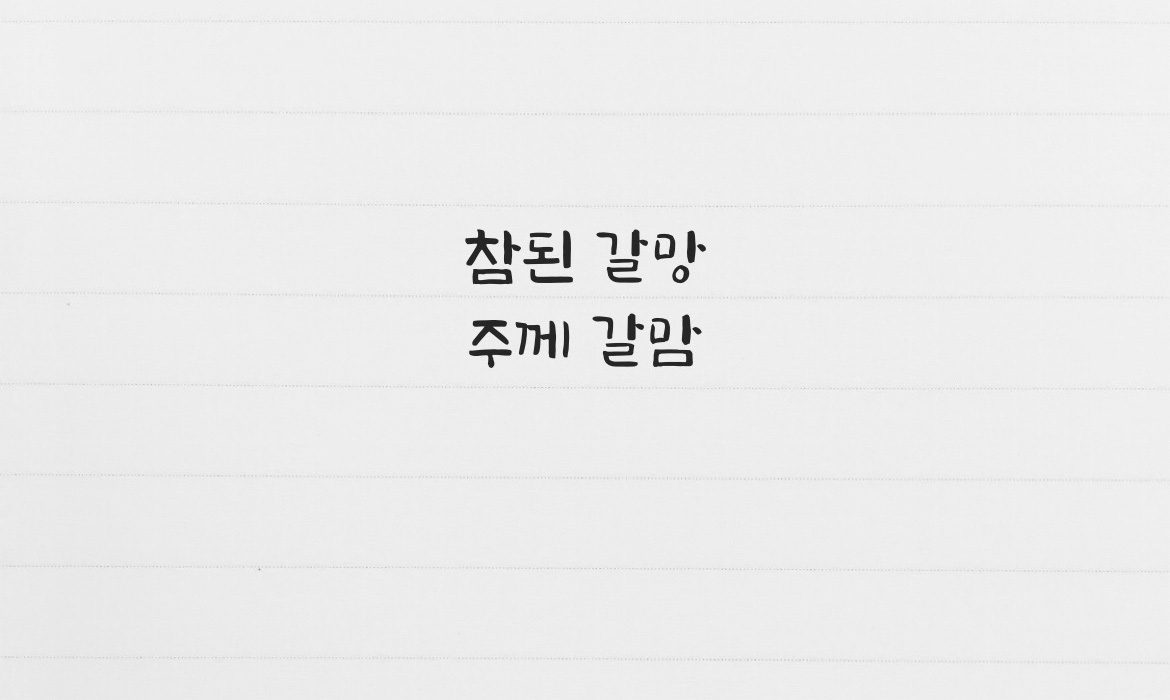 참된 갈망
주께 갈맘